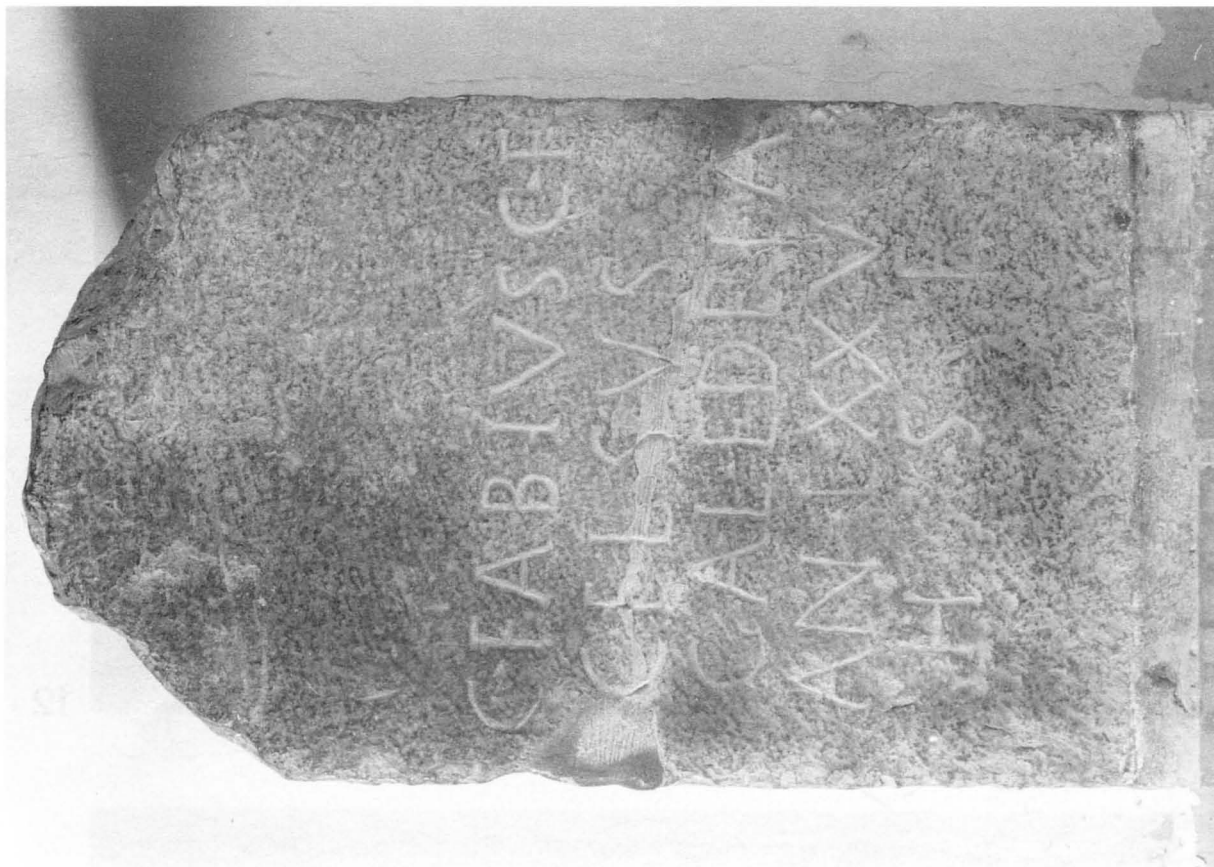 C FABIVS C F
CELSVS
GAL EDETA
AN LXXV
H S